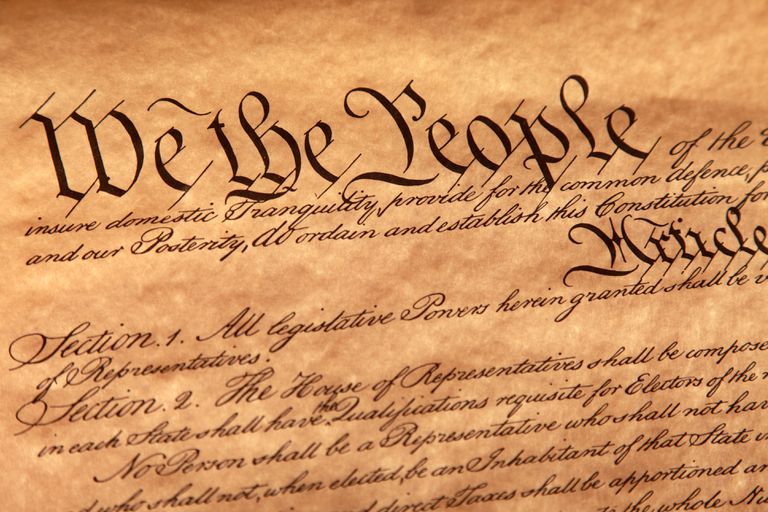 We the People of the
insure domestic Tranquility, provide for the common defence,
and our Posterity, do ordain and establish this Constitution for
Article
Section. 1. All legislative Powers herein granted shall be
of Representatives.
Section. 2. The House of Representatives shall be compose
in each State shall have the Qualifications requisite for Electors of the
No Person shall be a Representative who shall not have
who shall not, when elected, be an Inhabitant of that State in
direct Taxes shall be apportioned
to the whole Nu